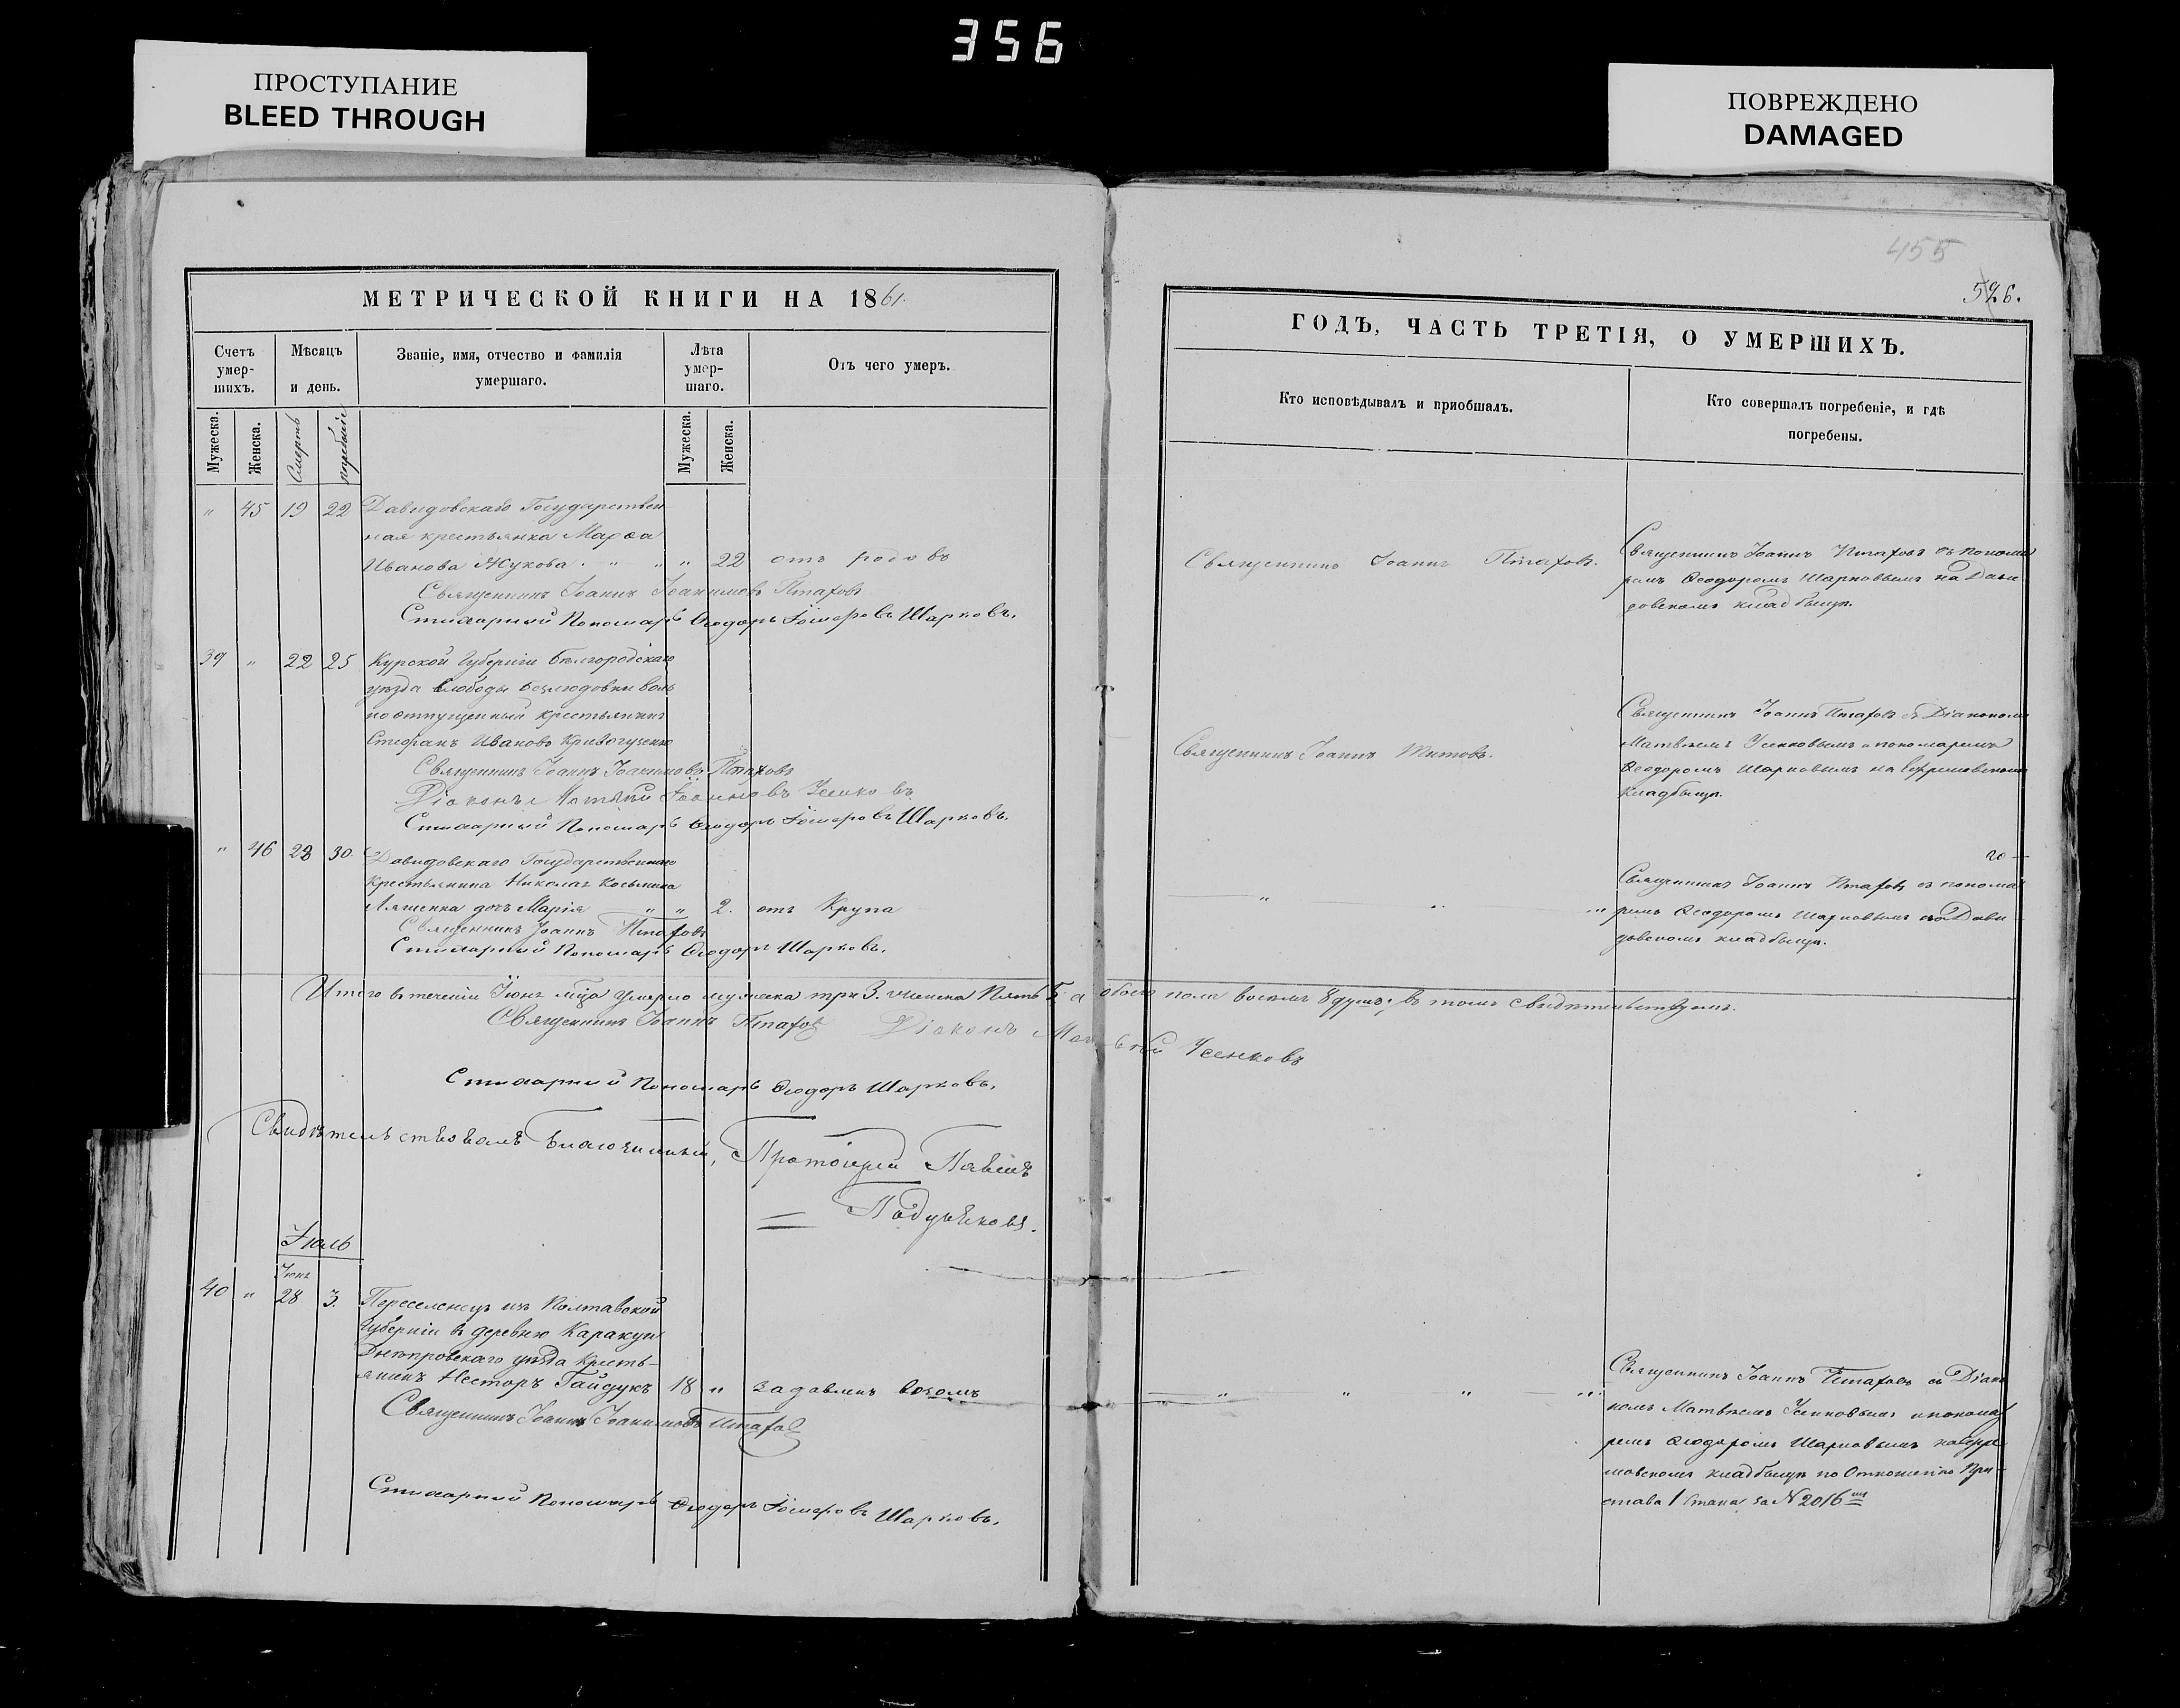 356
ПРОСТУПАНИЕ
BLEED THROUGH
ПОВРЕЖДЕНО
DAMAGED
МЕТРИЧЕСКОЙ КНИГИ НА 1861.
Счетъ умер-шихъ.
Мѣсяцъ и день.
Званіе, имя, отчество и фамилія умершаго.
Лѣта умер-шаго.
Отъ чего умеръ.
Мужеска.
Женска.
Смерть
Мужеска.
Женска.
" 45 19 22 Давидовскаго Государствен
ная крестьянка Марѳа
Иванова Жукова. " " " 22 отъ родовъ
Священникъ Іоаннъ Іоакимовъ Птаховъ
Стихарный Пономарь Ѳеодоръ Шарковъ.
39 " 22 25 Курской Губерніи Бѣлгородскаго
уѣзда Слободы Безлюдовки воль
но отпущенный крестьянинъ
Стефанъ Ивановъ
Священникъ Іоаннъ Іоакимовъ Птаховъ
Діаконъ Матѳей Усенковъ
Стихарный Пономарь Ѳеодоръ Шарковъ.
" 46 28 30. Давидовскаго Государственнаго
крестьянина Николая Косьмина
Ляшенка дочь Марія " " 2. отъ Крупа
Священникъ Іоаннъ Птаховъ
Стихарный Пономарь Ѳеодоръ Шарковъ.
Итого въ теченіи Іюня мца умерло мужеска три 3. женска Пять 5 а обоего пола восемь 8 душъ; въ томъ свидѣтельствуемъ.
Священникъ Іоаннъ Птаховъ Діаконъ Матѳей Усенковъ
Стихарный Пономарь Ѳеодоръ Шарковъ.
Свидѣтельствовалъ Благочинный, Протоіерей Павелъ
Іюль
Іюня
40 " 28 3. Переселенецъ изъ Полтавской
Губерніи въ деревню
Днѣпровскаго уѣзда кресть-
янинъ Несторъ Гайдукъ 18 " задавленъ возомъ
Священникъ Іоаннъ Іоакимовъ Птаховъ
Стихарный Пономарь Ѳеодоръ Шарковъ.
455
526.
ГОДЪ, ЧАСТЬ ТРЕТІЯ, О УМЕРШИХЪ.
Кто исповѣдывалъ и пріобщалъ.
Кто совершалъ погребеніе, и гдѣ
погребены.
Священникъ Іоаннъ Птаховъ.
Священникъ Іоаннъ Птаховъ съ понома
ремъ Ѳеодоромъ Шарковымъ на Дави
довскомъ кладбищѣ.
Священникъ Іоаннъ Титовъ.
Священникъ Іоаннъ Птаховъ съ Діакономъ
Матвѣемъ Усенковымъ и пономаремъ
Ѳеодоромъ Шарковымъ на
кладбищѣ.
Священникъ Іоаннъ Птаховъ съ понома
ремъ Ѳеодоромъ Шарковымъ на Дави
довскомъ кладбищѣ.
Священникъ Іоаннъ Птаховъ съ Діако
номъ Матвѣемъ Усенковымъ и понома
ремъ Ѳеодоромъ Шарковымъ на
кладбищѣ по Отношенію При
става 1 Стана за № 2016